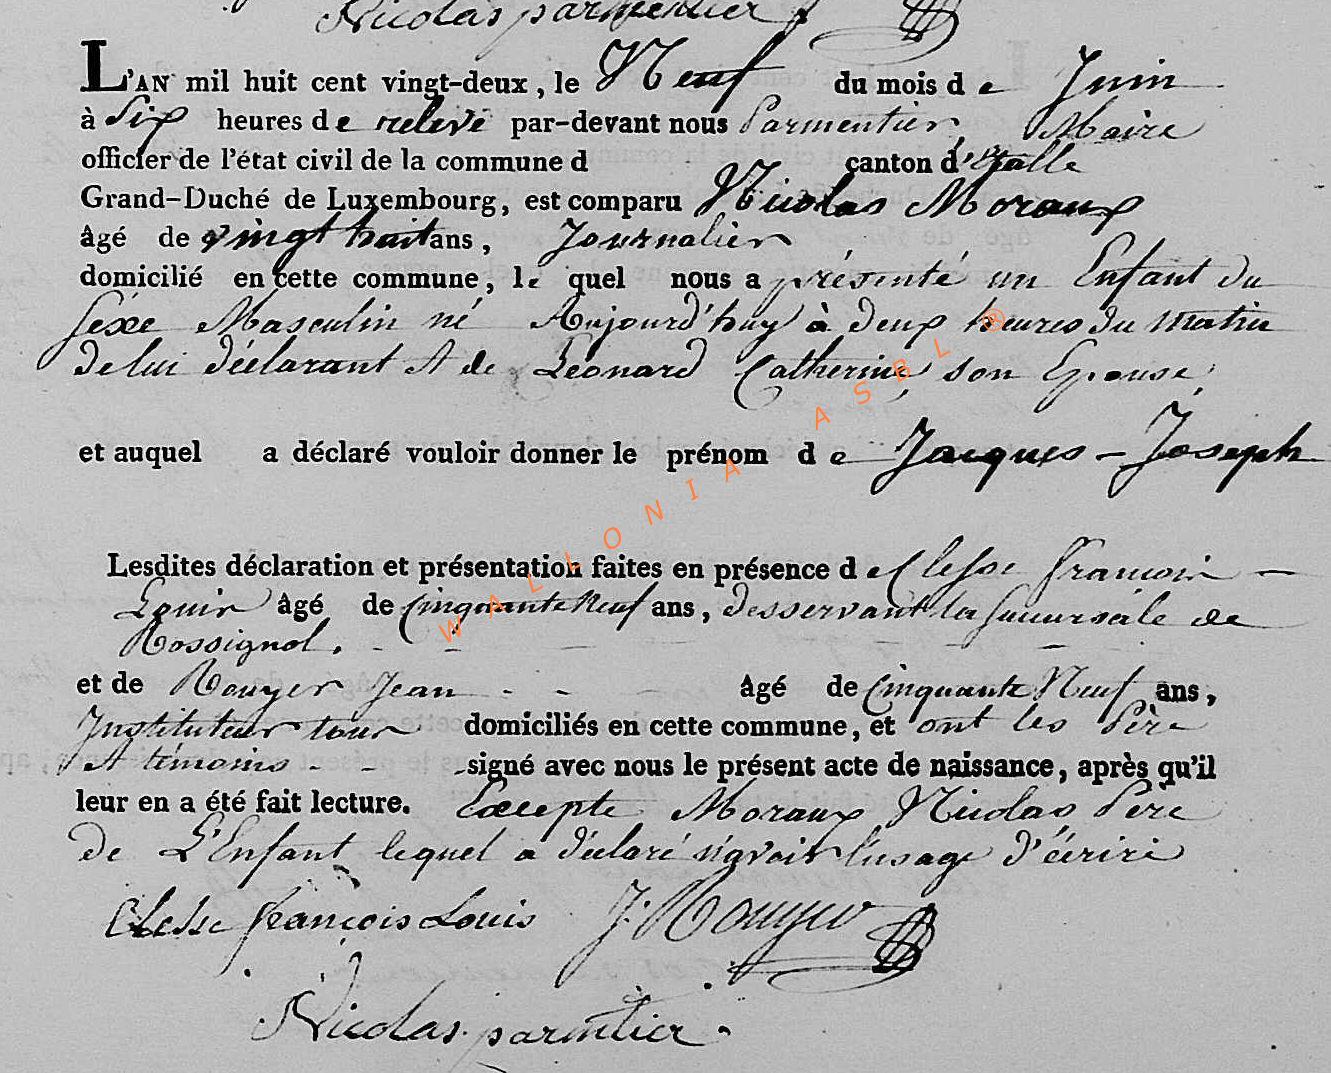 Nicolas parmentier
L'AN mil huit cent vingt-deux, le Neuf du mois de Juin
à Six heures de relevé par-devant nous Parmentier, Maire
officier de l'état civil de la commune d canton d'Etalle
Grand-Duché de Luxembourg, est comparu Nicolas Moraux
âgé de vingt huit ans, Journalier
domicilié en cette commune, le quel nous a présenté un Enfant du
séxe Masculin né Aujourd'huy à deux heures du matin
de lui déclarant et de Léonard Catherine son Epouse,
et auquel a déclaré vouloir donner le prénom de Jacques - Joseph
Lesdites déclaration et présentation faites en présence de Clesse francois
Louis âgé de Cinquante Neuf ans, desservant la succursale de
Rossignol.
et de Rouyer Jean âgé de Cinquante Neuf ans,
Instituteur tous domiciliés en cette commune, et ont les Père
et témoins signé avec nous le présent acte de naissance, après qu'il
leur en a été fait lecture. Excepte Moraux Nicolas Père
de L'Enfant lequel a déclaré n'avoir l'usage d'écrire
Clesse françois Louis J. Rouyer
Nicolas parmentier.
WALLONIA ASBL ®